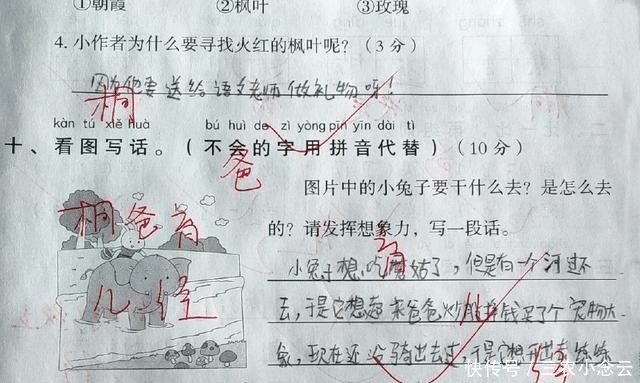 ①朝霞 ②枫叶 ③玫瑰
4. 小作者为什么要寻找火红的枫叶呢？（3 分）
因为他要送给语文老师做礼物呀！
kàn tú xiě huà bú huì de zì yòng pīn yīn dài tì
十、看图写话。（不会的字用拼音代替）（10 分）
图片中的小兔子要干什么去？是怎么去
的？请发挥想象力，写一段话。
小兔子想吃蘑菇了，但是有一个河过不
去，于是它想起来爸爸炒股挣钱买了个宠物大
象，现在还没骑出去过，于是它想开出去练练
桐爸育
儿经
快传号／三农小念云